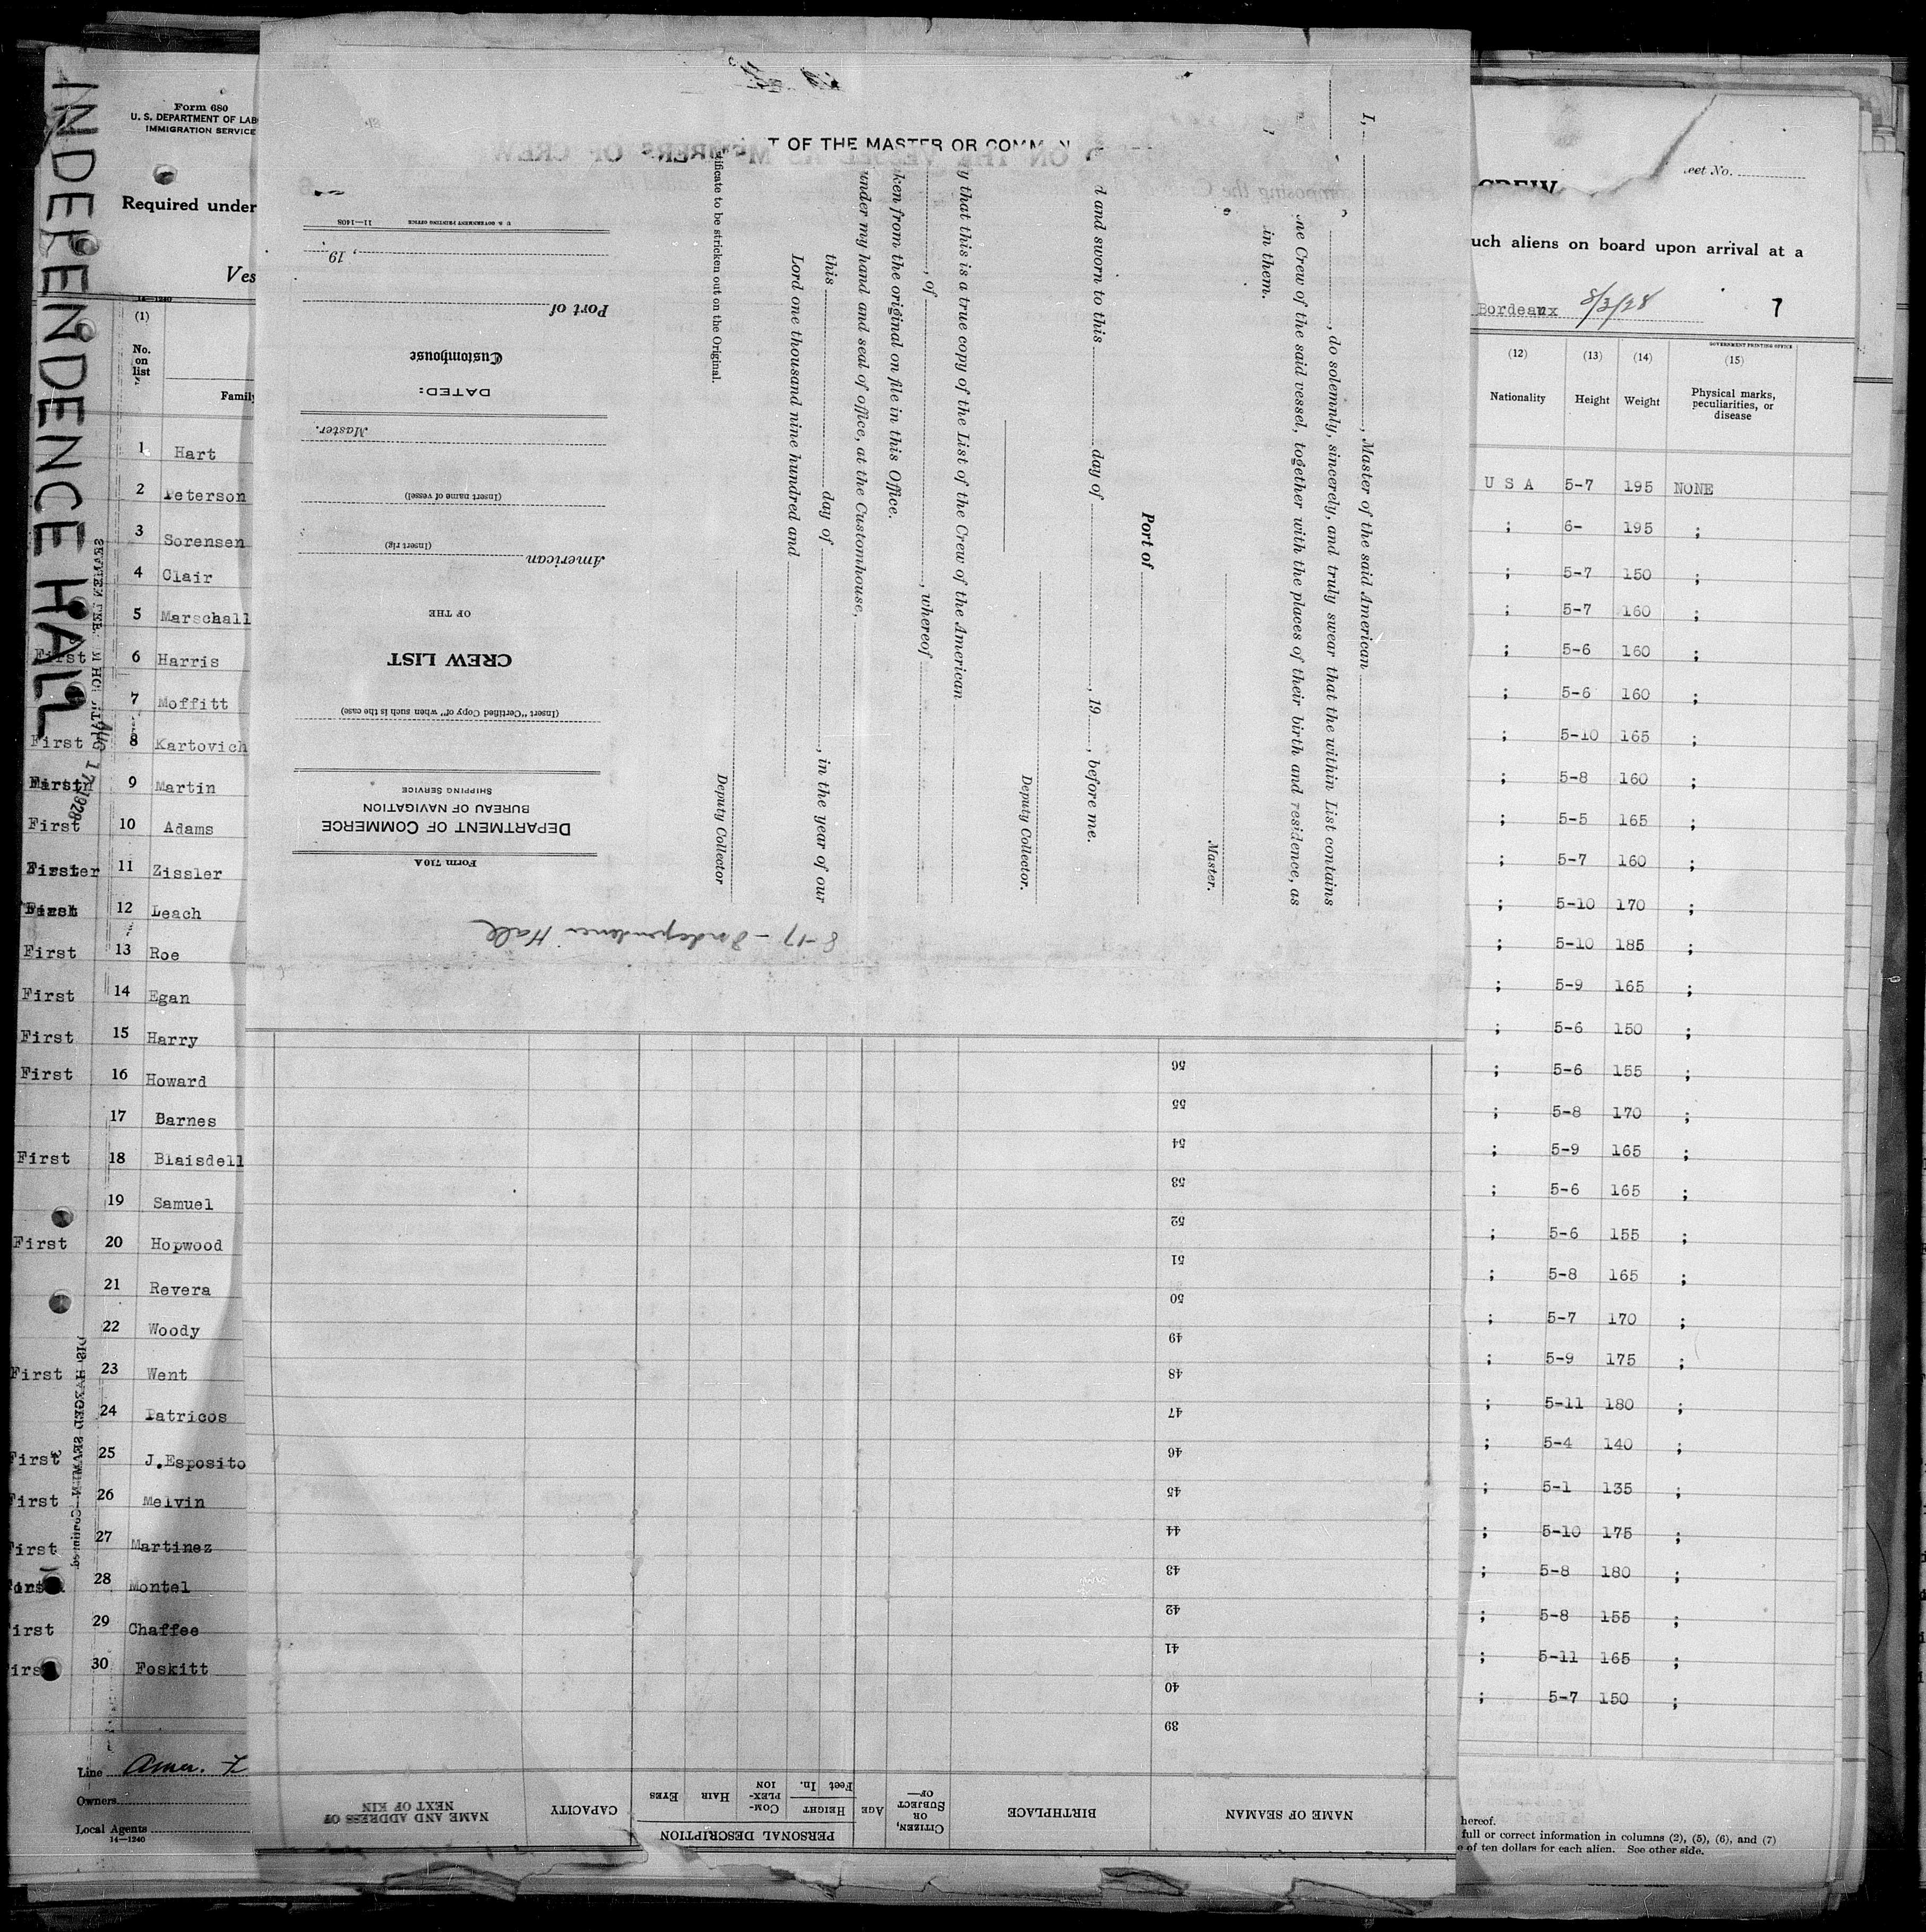 INDEPENDENCE HALL
Form 680
U. S. DEPARTMENT OF LAB
IMMIGRATION SERVICE
Required under
Ves
14—1240
(1)
No. on list
Family
1 Hart
2 Peterson
3 Sorensen
4 Clair
5 Marschall
First 6 Harris
7 Moffitt
First 8 Kartovich
9 Martin
First 10 Adams
11 Zissler
12 Leach
First 13 Roe
First 14 Egan
First 15 Harry
First 16 Howard
17 Barnes
First 18 Blaisdell
19 Samuel
First 20 Hopwood
21 Revera
22 Woody
First 23 Went
24 Patricos
First 25 J.Esposito
First 26 Melvin
First 27 Martinez
28 Montel
irst 29 Chaffee
30 Foskitt
AUG 17 1928
Line Amer.
Owners
Local Agents
14—1240
T OF THE MASTER OR COMM
I, , Master of the said American
, do solemnly, sincerely, and truly swear that the within List contains
he Crew of the said vessel, together with the places of their birth and residence, as
in them.
Master.
Port of
d and sworn to this day of , 19 , before me.
Deputy Collector.
y that this is a true copy of the List of the Crew of the American
, of , whereof
ken from the original on file in this Office.
under my hand and seal of office, at the Customhouse,
this day of , in the year of our
Lord one thousand nine hundred and
Deputy Collector
tificate to be stricken out on the Original.
8-17 - Independence Hall
Form 710A
DEPARTMENT OF COMMERCE
BUREAU OF NAVIGATION
SHIPPING SERVICE
(Insert "Certified Copy of" when such is the case)
CREW LIST
OF THE
American
(Insert rig)
(Insert name of vessel)
Master.
DATED:
Customhouse
Port of
, 19
U. S. GOVERNMENT PRINTING OFFICE 11—1408
NAME OF SEAMAN
BIRTHPLACE
CITIZEN, OR SUBJECT OF—
AGE
PERSONAL DESCRIPTION
HEIGHT
Feet In.
COM-PLEX-ION
HAIR
EYES
CAPACITY
NAME AND ADDRESS OF NEXT OF KIN
39
40
41
42
43
44
45
46
47
48
49
50
51
52
53
54
55
56
eet No.
CREW
uch aliens on board upon arrival at a
Bordeaux 8/3/28 7
GOVERNMENT PRINTING OFFICE
(12) (13) (14) (15)
Nationality Height Weight Physical marks, peculiarities, or disease
U S A 5-7 195 NONE
; 6- 195 ;
; 5-7 150 ;
; 5-7 160 ;
; 5-6 160 ;
; 5-6 160 ;
; 5-10 165 ;
; 5-8 160 ;
; 5-5 165 ;
; 5-7 160 ;
; 5-10 170 ;
; 5-10 185 ;
; 5-9 165 ;
; 5-6 150 ;
; 5-6 155 ;
; 5-8 170 ;
; 5-9 165 ;
; 5-6 165 ;
; 5-6 155 ;
; 5-8 165 ;
; 5-7 170 ;
; 5-9 175 ;
; 5-11 180 ;
; 5-4 140 ;
; 5-1 135 ;
; 5-10 175 ;
; 5-8 180 ;
; 5-8 155 ;
; 5-11 165 ;
; 5-7 150 ;
hereof.
full or correct information in columns (2), (5), (6), and (7)
e of ten dollars for each alien. See other side.